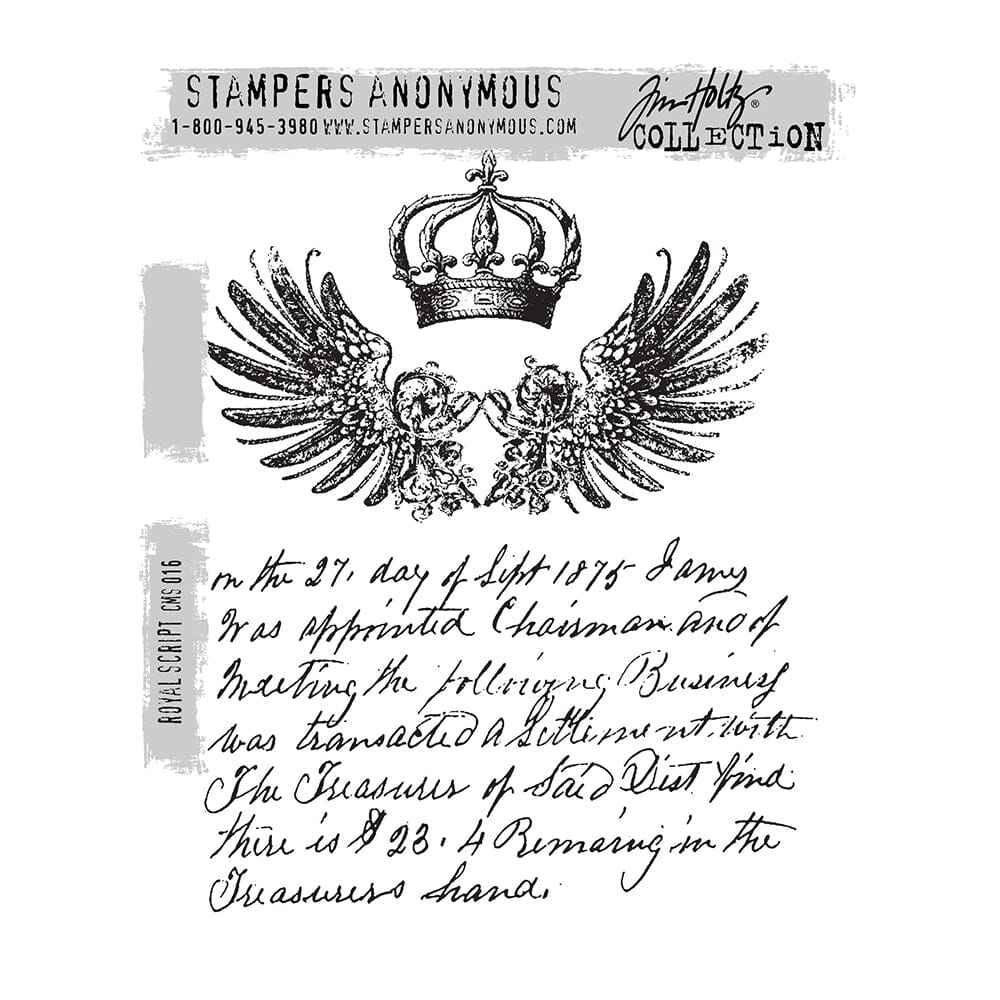 STAMPERS ANONYMOUS
1-800-945-3980 WWW.STAMPERSANONYMOUS.COM
Tim Holtz®
COLLECTION
ROYAL SCRIPT CMS 016
on the 27. day of Sept 1875 James
Was appointed Chairman and of
Meeting the following Business
was transacted A Settlement with
The Treasurer of Said Dist find
there is $23.4 Remaing in the
Treasurers hand.